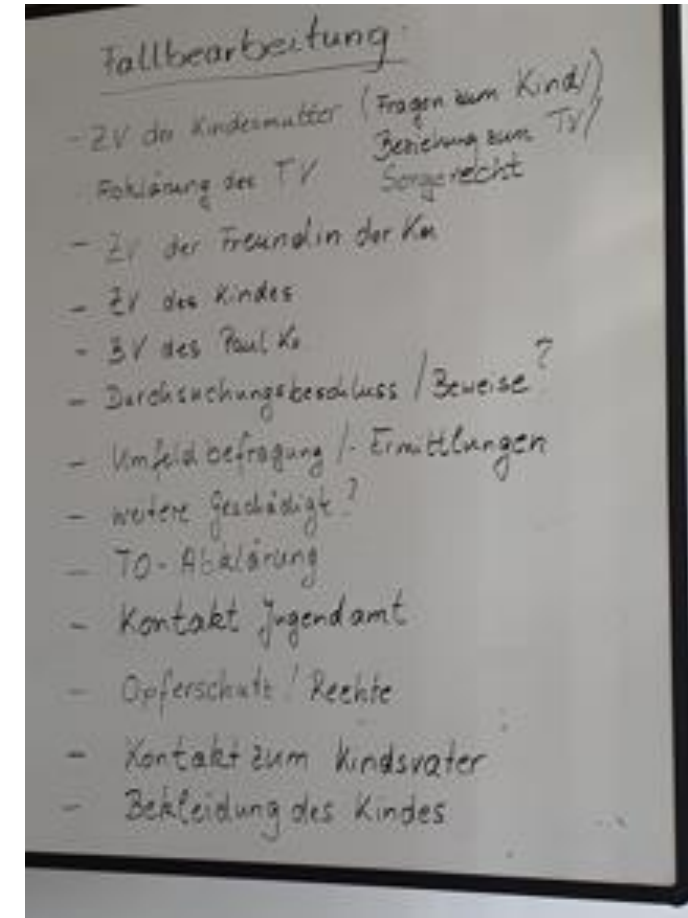 Fallbearbeitung:
- ZV der Kindesmutter (Fragen zum Kind/
Beziehung zum TV/
Abklärung des TV Sorgerecht
- ZV der Freundin der Km
- ZV des Kindes
- BV des Paul
- Durchsuchungsbeschluss / Beweise?
- Umfeldbefragung /- Ermittlungen
- weitere Geschädigte?
- TO-Abklärung
- Kontakt Jugendamt
- Opferschutz / Rechte
- Kontakt zum Kindsvater
- Bekleidung des Kindes